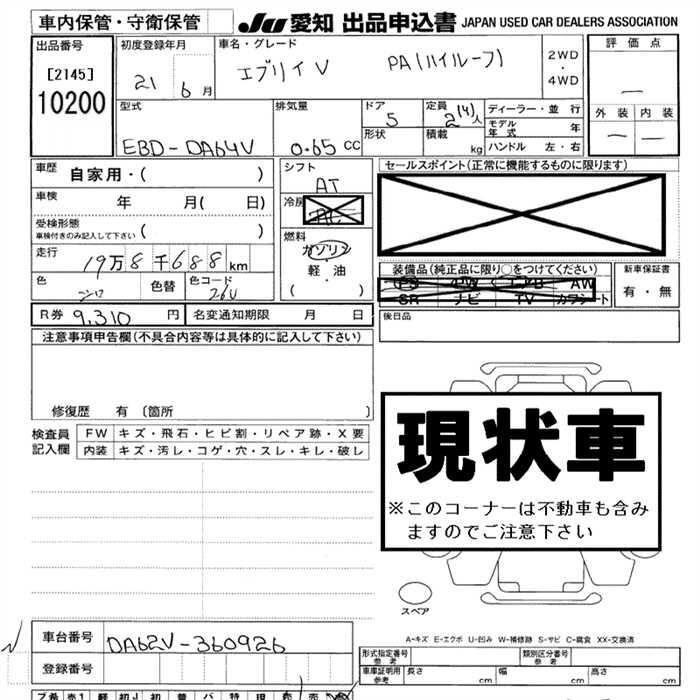 車内保管・守衛保管 JU 愛知 出品申込書 JAPAN USED CAR DEALERS ASSOCIATION
出品番号
[2145]
10200
初度登録年月
21 6月
車名・グレード
エブリイV PA(ハイルーフ)
2WD
・
4WD
評価点
ー
外装 内装
ー ー
型式
EBD-DA64V
排気量
0.65 CC
ドア
5
形状
定員
2(4)人
積載
kg
ディーラー・並 行
モデル年式 年
ハンドル 左・右
車歴
自家用・( )
車検
年 月( 日)
受検形態
車検付きのみ記入して下さい ( )
走行
19万8千688km
色
シロ
色替
色コード
26U
シフト
AT
冷房
AC
燃料
ガソリン
・
軽・油
( ・ )
セールスポイント(正常に機能するものに限ります)
装備品(純正品に限り○をつけてください)
PS PW エアB AW
SR ナビ TV カワシート
新車保証書
有・無
後日品
R券 9,310 円
名変通知期限 月 日
注意事項申告欄(不具合内容等は具体的に記入して下さい)
修復歴 有 〔箇所 〕
検査員
記入欄
FW キズ・飛石・ヒビ割・リペア跡・X要
内装 キズ・汚レ・コゲ・穴・スレ・キレ・破レ
現状車
※このコーナーは不動車も含み
ますのでご注意下さい
スペア
A-キズ E-エクボ U-凹み W-補修跡 S-サビ C-腐食 XX-交換済
車台番号
DA62V-360926
登録番号
形式指定番号
参考
類別区分番号
参考
車庫証明用
参考
長さ cm 幅 cm 高さ cm